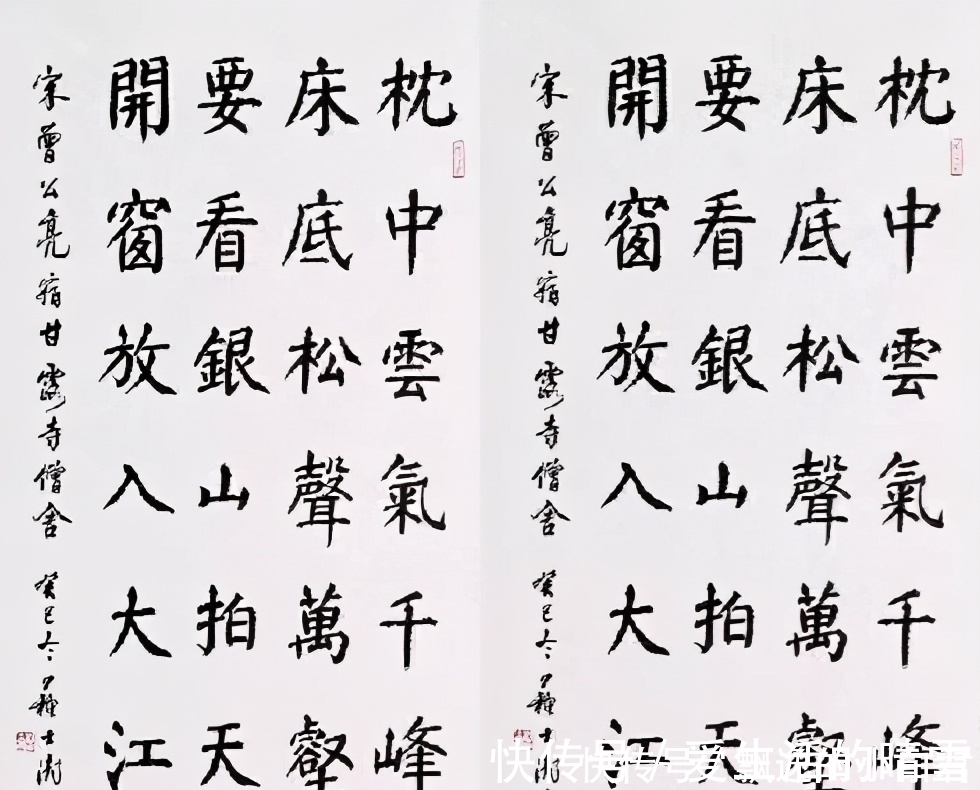 枕中雲氣千峰
床底松聲萬壑
要看銀山拍天
開窗放入大江
宋曾公亮宿甘露寺僧舍 癸巳冬 士澍
枕中雲氣千峰
床底松聲萬壑
要看銀山拍天
開窗放入大江
宋曾公亮宿甘露寺僧舍 癸巳冬 士
快传号/